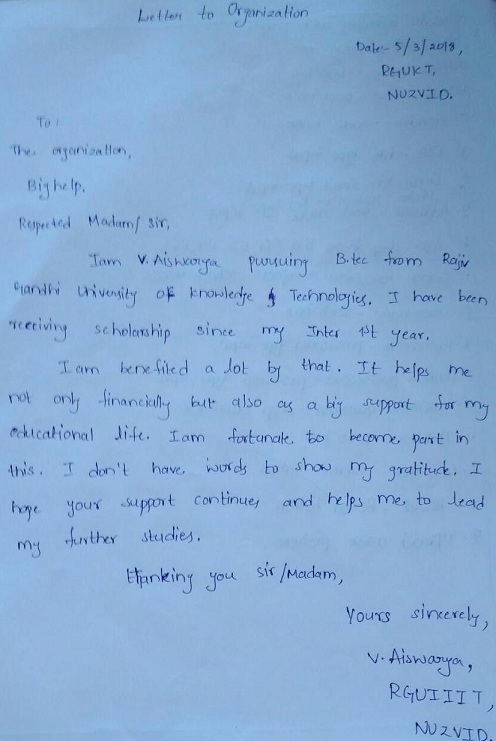 Letter to Organization
Date:- 5/3/2018,
RGUKT,
NUZVID.
To:
The organization,
Bighelp.
Respected Madam/ sir,
Iam V. Aiswarya pursuing B.tec from Rajiv
Gandhi University of knowledge & Technologies. I have been
receiving scholarship since my Inter 1st year.
I am benefited a lot by that. It helps me
not only financially but also as a big support for my
educational life. Iam fortunate to become part in
this. I don't have words to show my gratitude. I
hope your support continues and helps me, to lead
my further studies.
Thanking you sir/Madam,
Yours sincerely,
V. Aiswarya,
RGUIIIT,
NUZVID.